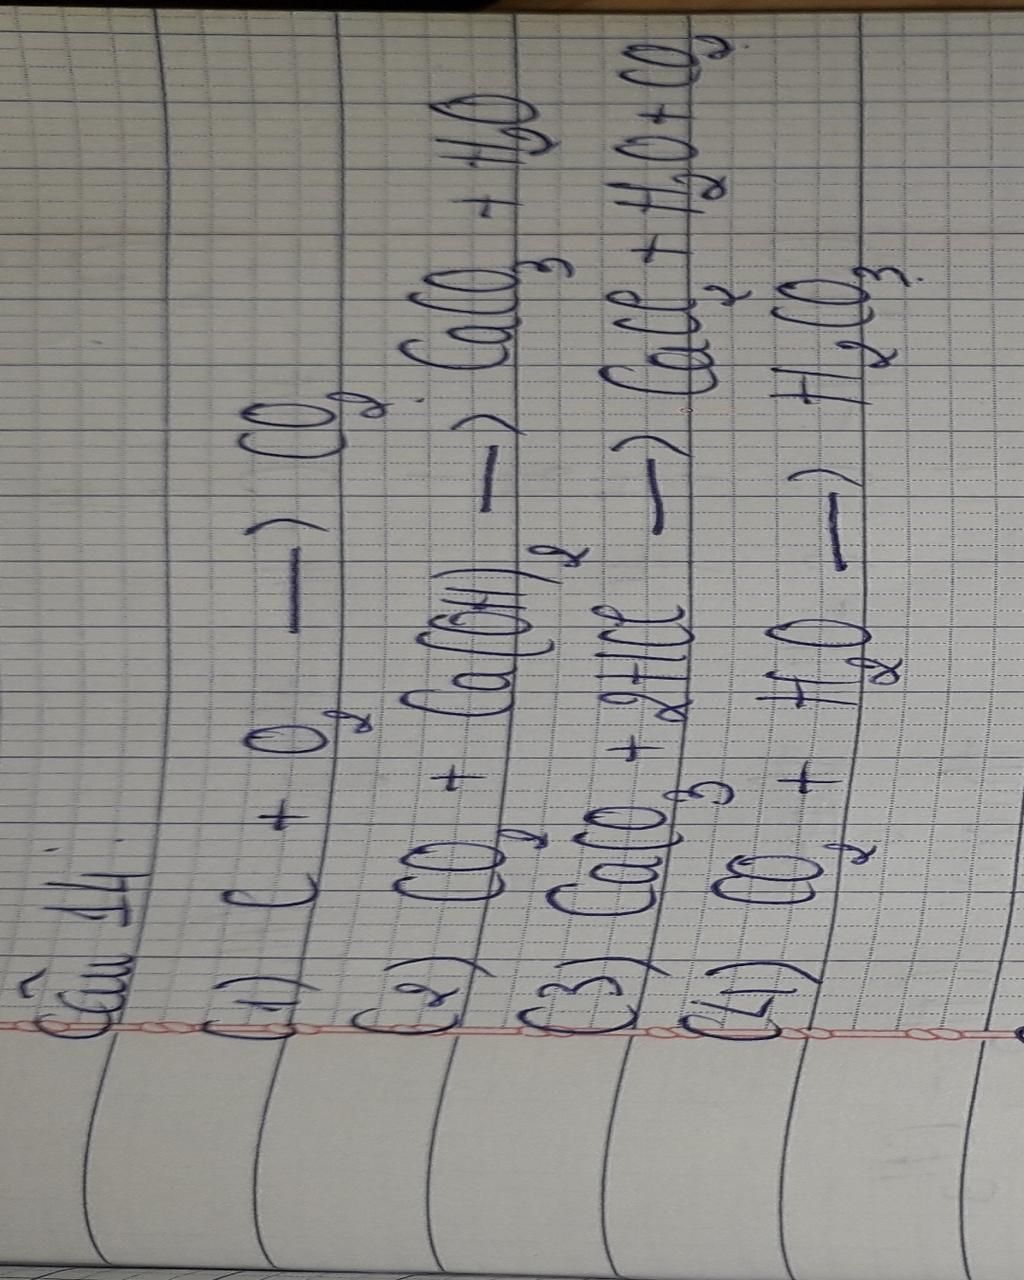 Câu 14:
(1) C + O₂ —) CO₂
(2) CO₂ + Ca(OH)₂ —) CaCO₃ + H₂O
(3) CaCO₃ + 2HCl —) CaCl₂ + H₂O + CO₂
(4) CO₂ + H₂O —) H₂CO₃.